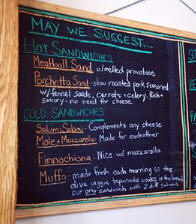 MAY WE SUGGEST...
HOT SANDWICHES
Meatball Sand w/melted provolone
Porchetta Sand - slow roasted pork, simmered
w/ fennel seeds, carrots + celery. Rich +
savory - no need for cheese
COLD SANDWICHES
Salumi Salami - Compliments any cheese
Mole + Mozzarella - Made for each other
Finnochiona - Nice w/ mozzarella
Muffo - made fresh each morning &
olive veggie tapenade soaks in the bread
our only sandwich with 2 diff salamis